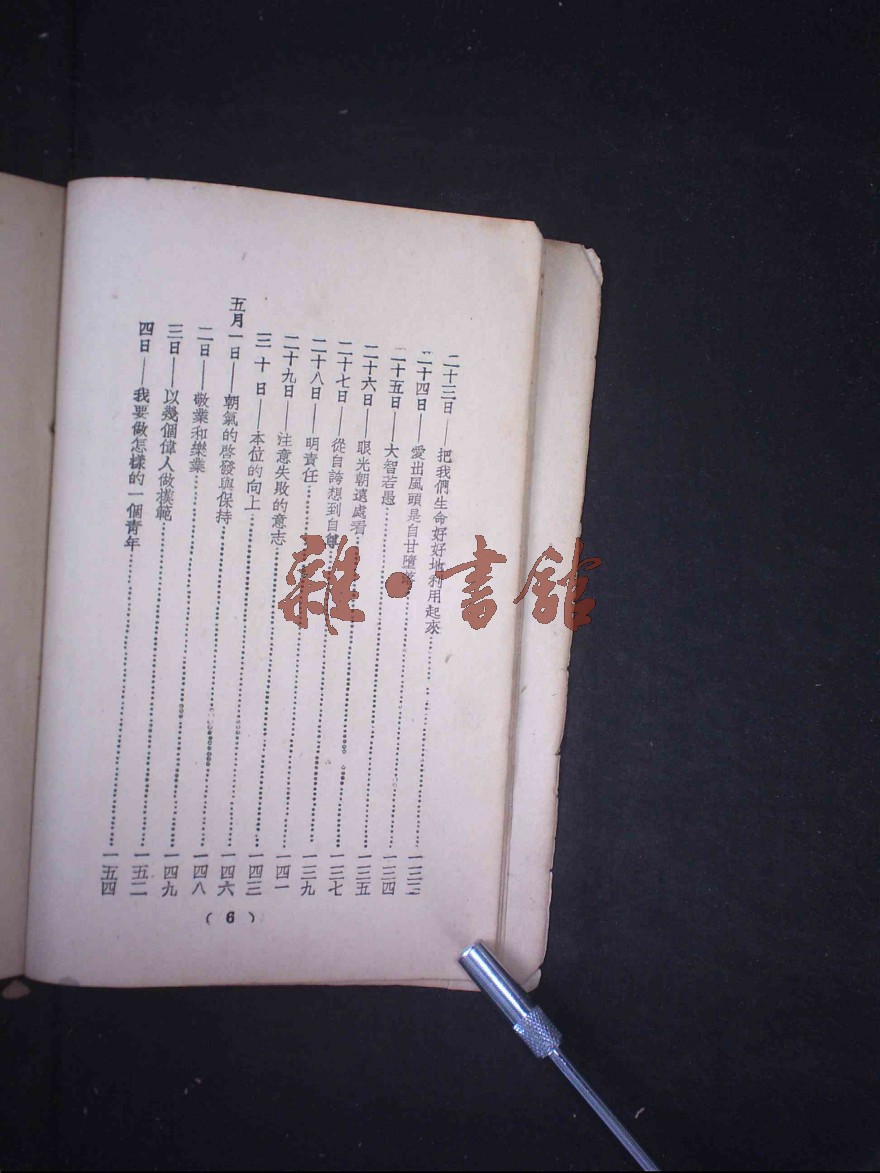 二十三日——把我們生命好好地利用起來……
二十四日——愛出風頭是自甘墮……一三四
二十五日——大智若愚……一三五
二十六日——眼光朝遠處看……一三七
二十七日——從自誇想到自……一三九
二十八日——明責任……一四一
二十九日——注意失敗的意志……一四三
三十日——本位的向上……一四六
五月一日——朝氣的啓發與保持……一四八
二日——敬業和樂業……一四九
三日——以幾個偉人做模範……一五二
四日——我要做怎樣的一個青年……一五四
( 6 )
雜·書館